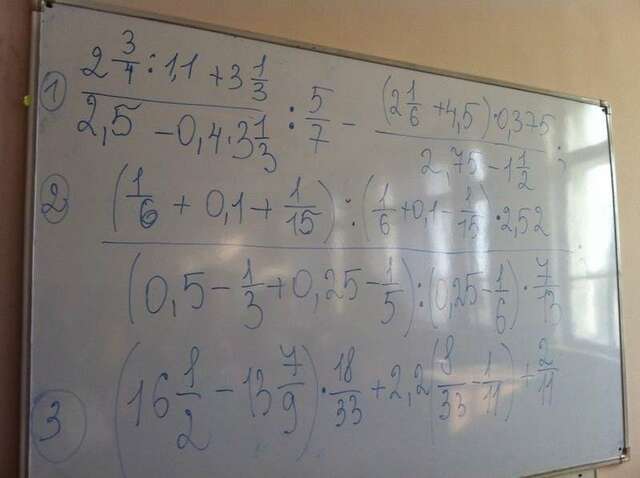 ① (2 3/4 : 1,1 + 3 1/3) / (2,5 − 0,4 · 3 1/3) : 5/7 − ((2 1/6 + 4,5) · 0,375) / (2,75 − 1 1/2) ;
② ((1/6 + 0,1 + 1/15) : (1/6 + 0,1 − 1/15) · 2,52) / ((0,5 − 1/3 + 0,25 − 1/5) : (0,25 − 1/6) · 7/13) ;
③ (16 1/2 − 13 7/9) · 18/33 + 2,2 (8/33 − 1/11) + 2/11